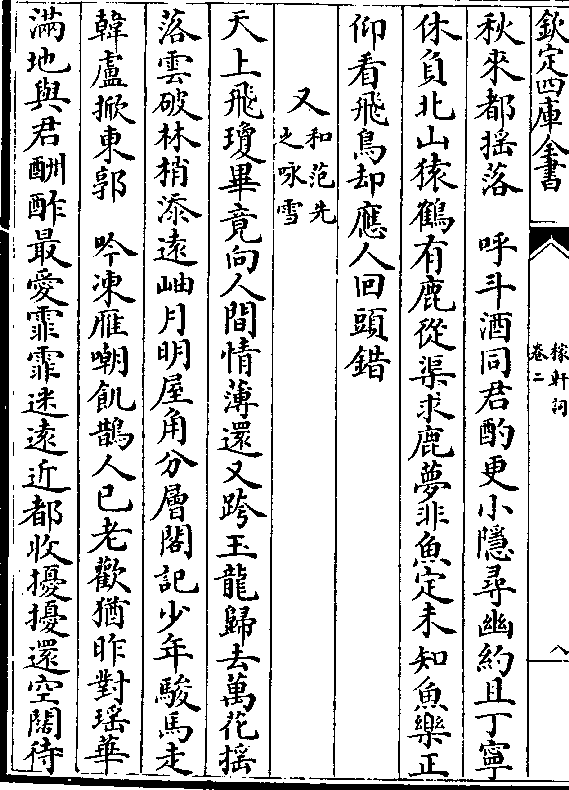 欽定四庫全書
稼軒詞
卷二
八
秋來都揺落　呼斗酒同君酌更小隱尋幽約且丁寧
休負北山猿鶴有鹿從渠求鹿夢非魚定未知魚樂正
仰看飛鳥却應人回頭錯
又和范先之咏雪
天上飛瓊畢竟向人間情薄還又跨玉龍歸去萬花揺
落雲破林梢添遠岫月明屋角分層閣記少年駿馬走
韓盧掀東郭　吟凍雁嘲飢鵲人已老歡猶昨對瑶華
滿地與君酬酢最愛霏霏迷遠近都收擾擾還空闊待